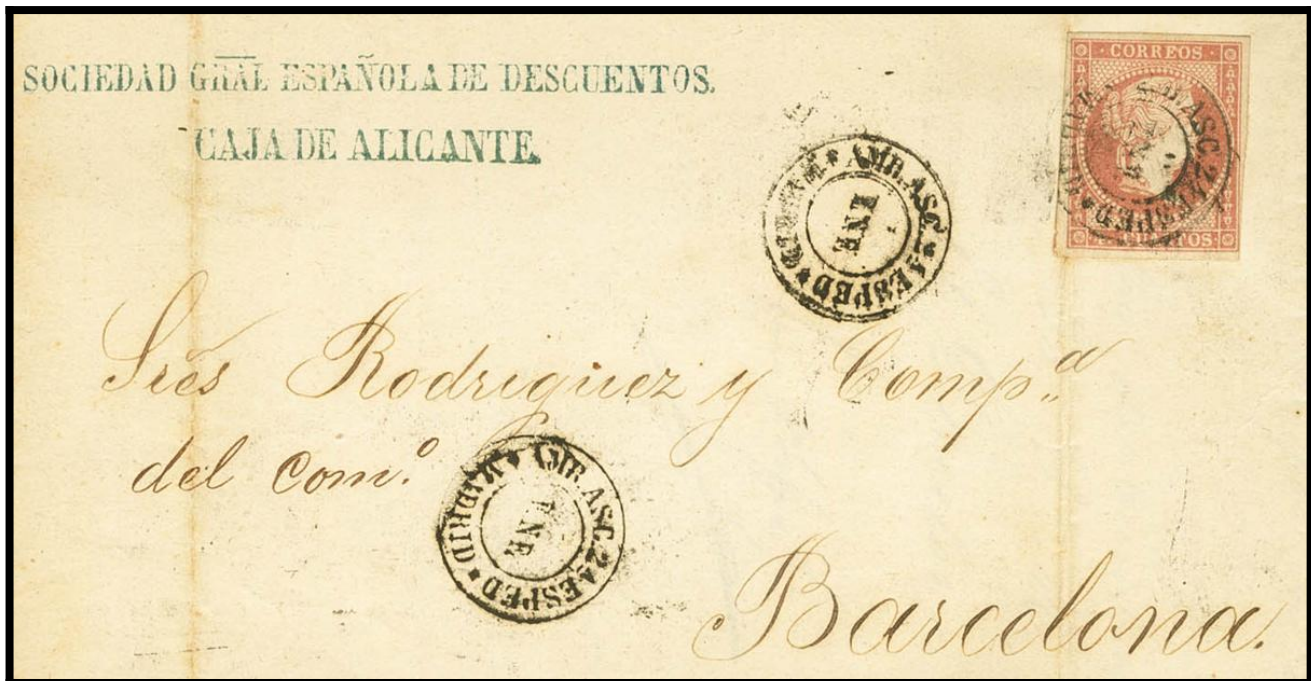 SOCIEDAD GRAL ESPAÑOLA DE DESCUENTOS.
CAJA DE ALICANTE.
CORREOS
AMB. ASC. 2A ESPED
AMB. ASC. 2A ESPED
ENE
Sres Rodriguez y Comp.a
del Com.o
MADRID * AMB. ASC. 2A ESPED *
ENE
Barcelona.